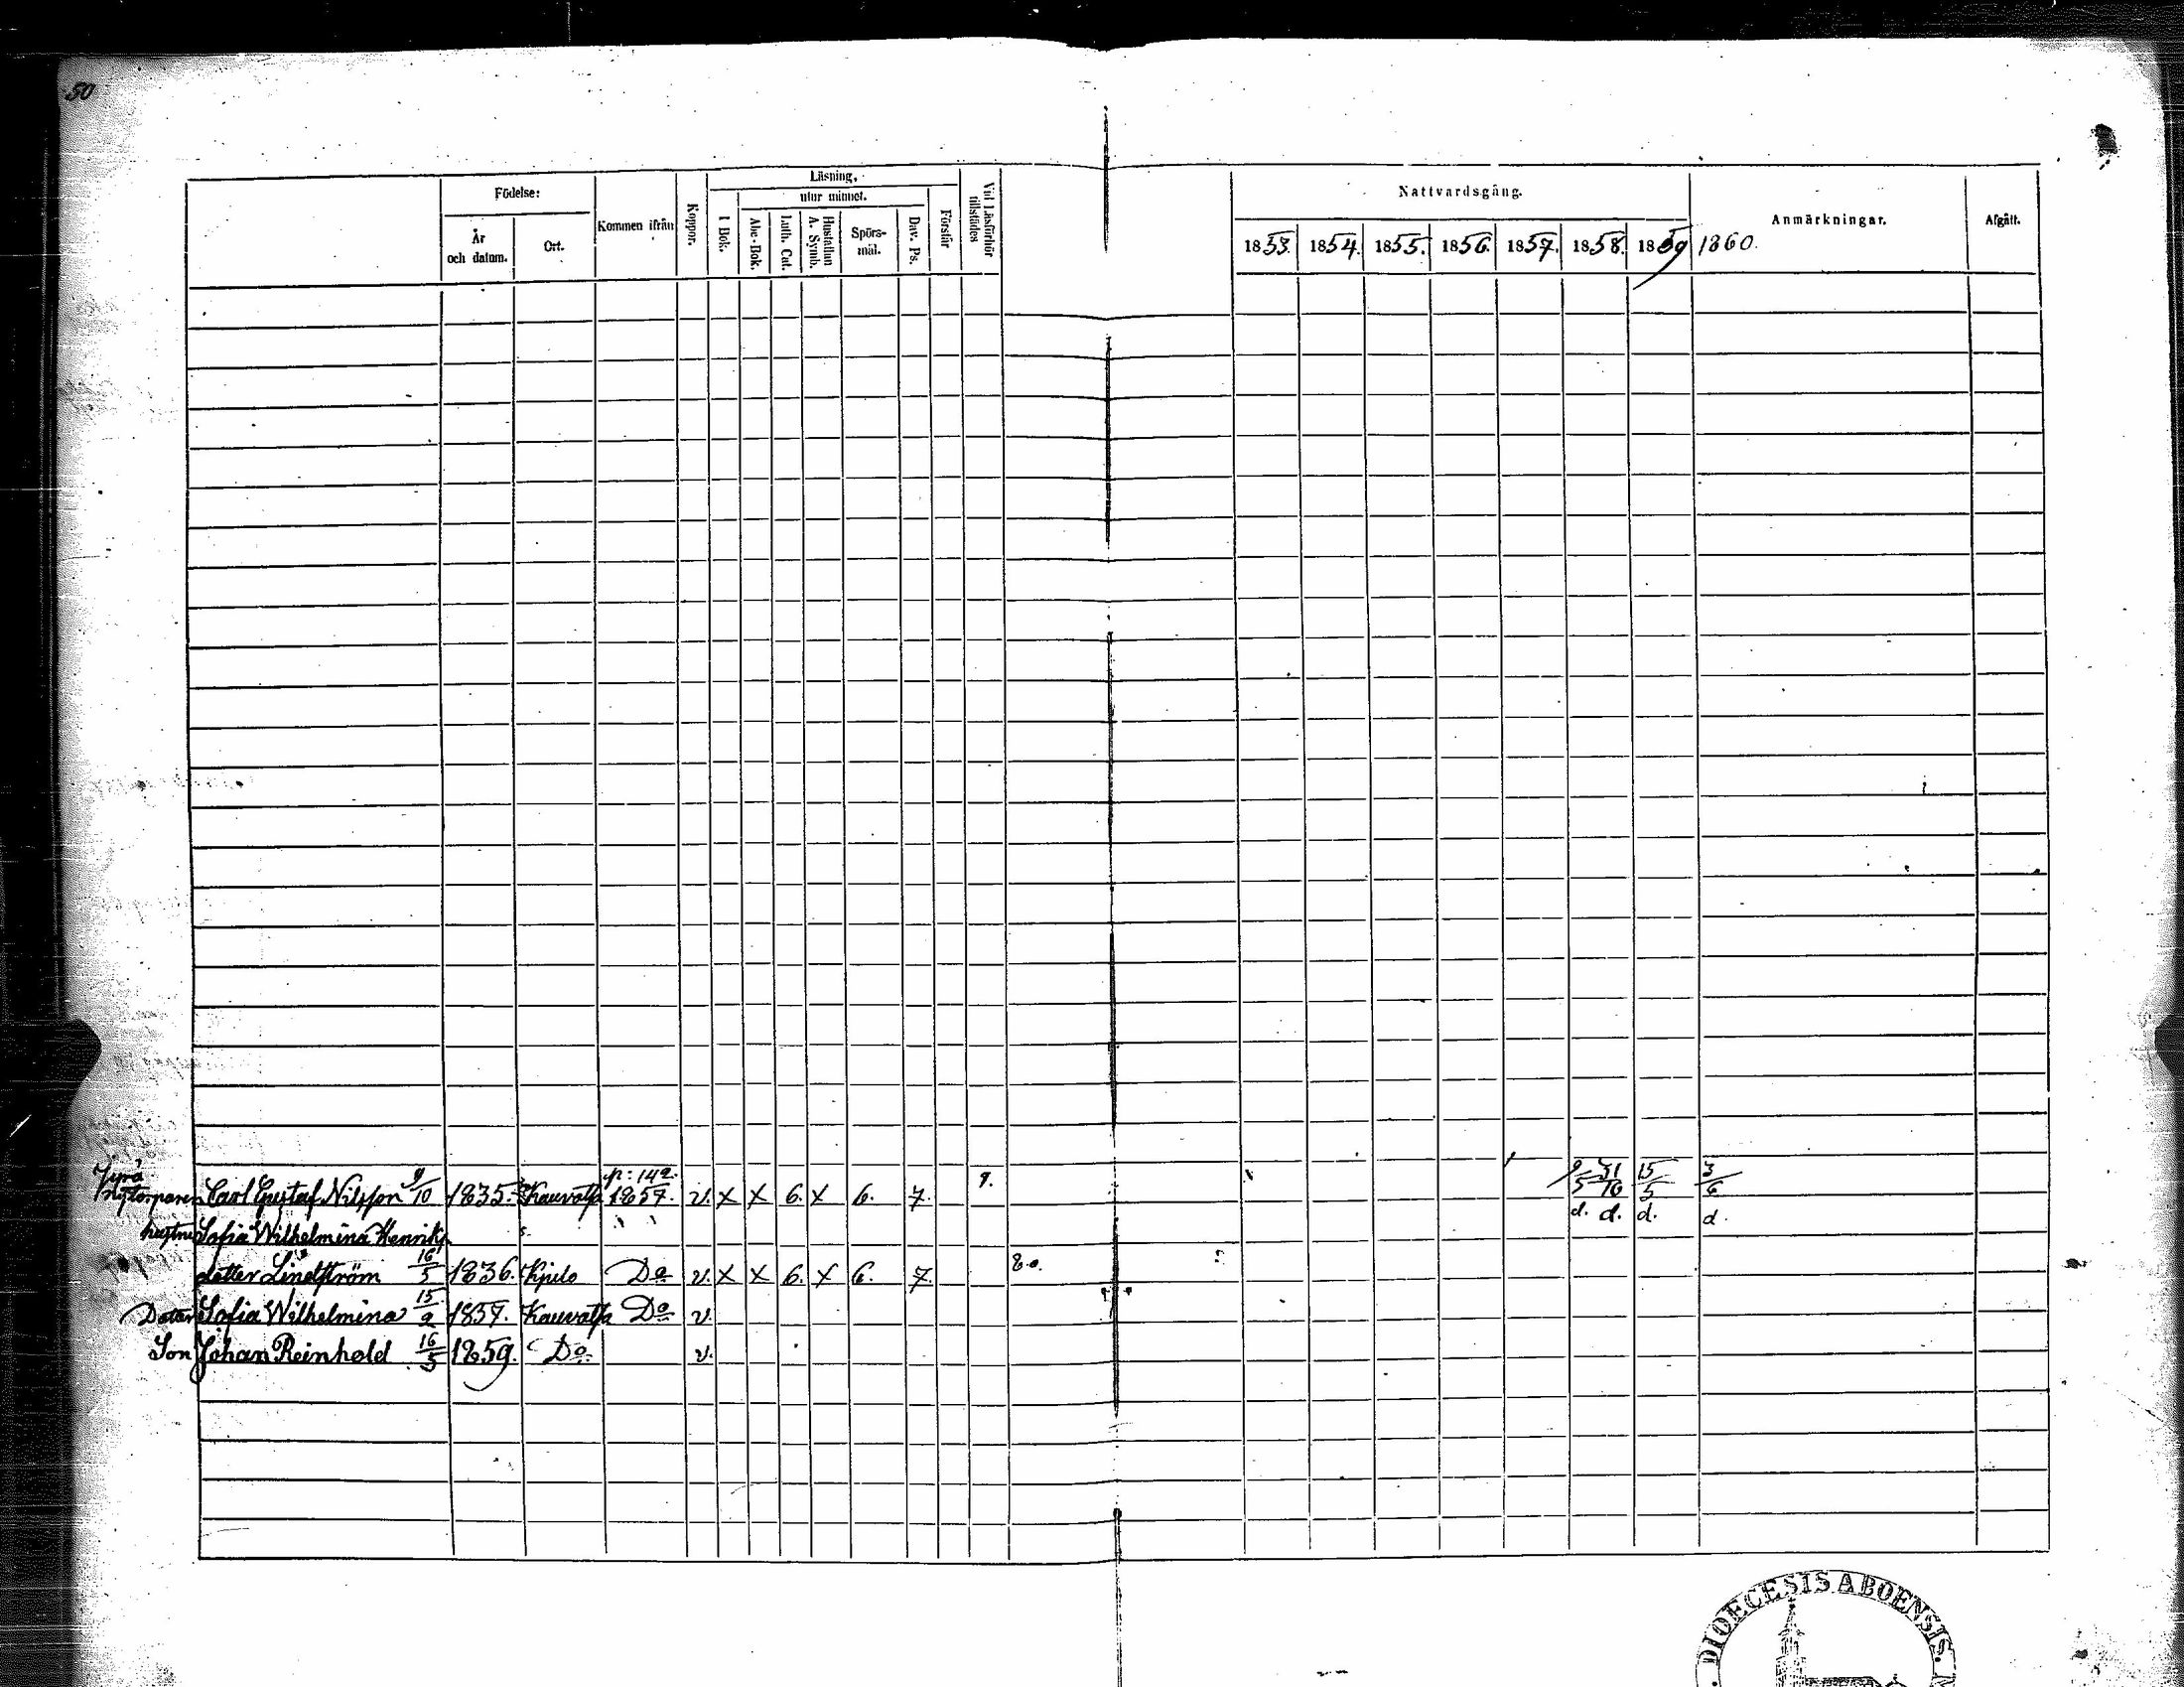 50
Födelse: Kommen ifrån Koppor. Läsning, Vid Läsförhör tillstädes Nattvardsgång. Anmärkningar. Afgått.
År och datum. Ort. I Bok. utur minnet. Förstår
Abc-Bok. Luth. Cat. Hustaflan A. Symb. Spörs-mål. Dav. Ps.
1853. 1854. 1855. 1856. 1857. 1858. 1859 1860.
p: 142.
nytorparen Carl Gustaf Nilsson 9/10 1835. 1857. v. X X 6. X 6. 7. 9. 9/5 31/10 15/5 3/6
d. d. d. d.
hustru Sofia Wilhelmina Henriks
dotter Lindström 16/5 1836. Kjulo Do v. X X 6. X 6. 7. 8.
Dotter Sofia Wilhelmina 1857. Kauvatsa Do v.
Son Johan Reinhold 16/5 1859. Do v.
DIOECESIS ABOENSIS.